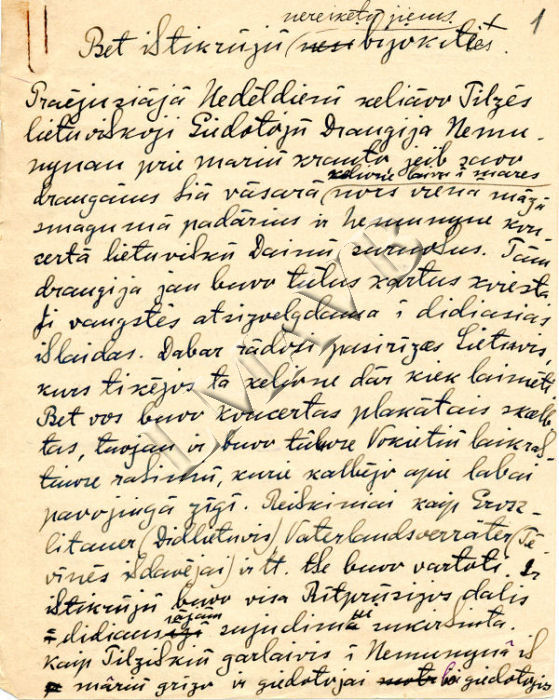 nereikėtų jiems
1
Bet ištikrūjū bijokitės.
Praėjusiąją Nedėldienį keliavo Tilžės
lietuviškoji Giedotojų Draugija Nemu-
nynan prie marių kranto jeib savo
kelione laivu į mares
draugams šią vasarą nors vieną mažą
smagumą padarius ir Nemunyne kon-
certą lietuviškų Dainų suruošus. Tam
draugija jau buvo tulus kartus kviesta
Ji vangstės atsižvelgdama į didiasias
išlaidas. Dabar rądosi pasiryžęs Lietuvis
kurs tikėjos ta kelione dar kiek laimėti
Bet vos buvo koncertas plakatais skelb-
tas, tuojau ir buvo tūluose Vokiečių laikraš-
čiuose rašinių, kurie kalbėjo apie labai
pavojingą žygį. Reiškiniai kaip Gross-
litauer (Didlietuvis), Vaterlandsverräter (Tė-
vinės išdavėjai) ir tt. čse buvo vartoti. Ir
ištikrūjū buvo visa Rytprūsijos dalis
į didiausį sujudimą
Kaip Tilžiškių garlaivis į Nemunyną iš
marių grįžo ir giedotojai giedotojis
LMAVB